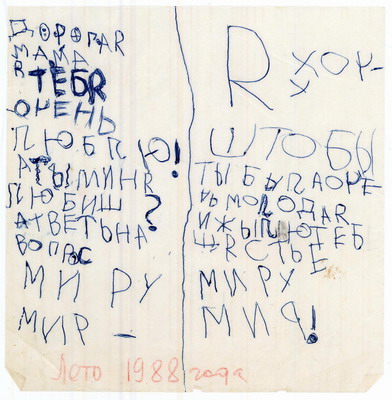 ДОРОГАЯ
МАМА
Я ТЕБЯ
ОЧЕНЬ
ЛЮБЛЮ!
А ТЫ МИНЯ
ЛЮБИШ?
АТВЕТЬ НА
ВОПРОС
МИРУ
МИР –
Я ХОЧУ-
ШТОБЫ
ТЫ БЫЛА ОЧЕ
НЬ МОЛОДАЯ
И ЖЫЛЮ ТЕБЕ
ЩЯСТЬЕ
МИРУ
МИР!
Лето 1988 года